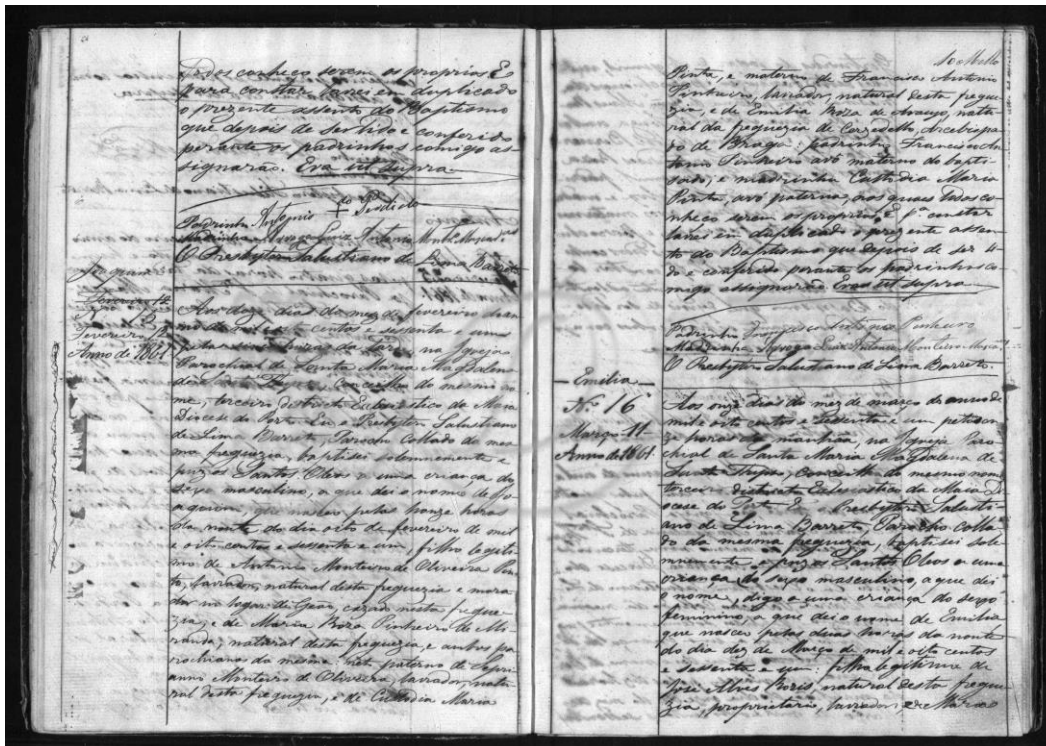 Todos conheço serem os proprios E
para constar lancei em duplicado
o prezente assento do Baptismo
que depois de ser lido e conferido
perante os padrinhos comigo as-
signarão. Era ut supra
Padrinho Antonio
Madrinha
O Presbytero Salustiano de Lima Barreto
Joaquim
Fevereiro 12
Fevereiro
Anno de 1861
Aos doze dias do mez de fevereiro do an-
no de mil oito centos e sessenta e um
horas da tarde, na Igreja
Parochial de Santa Maria Magdalena
de Santo Thyrso, concelho do mesmo no-
me, terceiro districto Ecclesiastico da Maia
Diocese do Porto Eu o Presbytero Salustiano
de Lima Barreto, Parocho Collado da mes-
ma freguezia, baptisei solemnemente e
puz os Santos Oleos a uma criança do
sexo masculino, a que dei o nome de Jo-
aquim, que nasceu pelas honze horas
da noute do dia oito de fevereiro de mil
e oito centos e sessenta e um, filho legiti-
mo de Antonio Monteiro de Oliveira Pin-
to, lavrador, natural desta freguezia e mora-
dor no logar de Geão, cazado nesta fregue-
zia, e de Maria Roza Pinheiro de Mi-
randa, natural desta freguezia, e ambos pa-
rochianos da mesma; neto paterno de Cypri-
anno Monteiro de Oliveira, lavrador, natu-
ral desta freguezia, e de Custodia Maria
Pinta, e materno de Francisco Antonio
Pinheiro, lavrador, natural desta fregue-
zia, e de Emilia Roza de Araujo, natu-
ral da freguezia de Arcebispa-
do de Braga; padrinho Francisco An-
tonio Pinheiro avô materno do bapti-
sado, e madrinha Custodia Maria
Pinta, avó paterna, aos quaes Todos co-
nheço serem os proprios. E pª. constar
lancei em duplicado o prezente assen-
to do Baptismo que depois de ser li-
do e conferido perante os padrinhos co-
migo assignarão. Era ut supra
Padrinho Francisco Antonio Pinheiro
Madrinha
O Presbytero Salustiano de Lima Barreto.
Emilia
Nº. 16
Março 11
Anno de 1861.
Aos onze dias do mez de março do anno de
mil e oito centos e sessenta e um pelas on-
ze horas da manhãa, na Igreja Paro-
chial de Santa Maria Magdalena de
Santo Thyrso, Concelho do mesmo nome
terceiro districto Ecclesiastico da Maia Di-
ocese do Porto Eu o Presbytero Salusti-
ano de Lima Barreto, Parocho Colla-
do da mesma freguezia, baptisei sole-
mnemente, e puz os Santos Oleos a uma
criança do sexo masculino, a que dei
o nome, digo a uma criança do sexo
feminino, a que dei o nome de Emilia
que nasceu pelas duas horas da noute
do dia dez de Março de mil e oito centos
e sessenta e um, filha legitima de
José Alves natural desta fregue-
zia, proprietario, lavrador, e de Maria